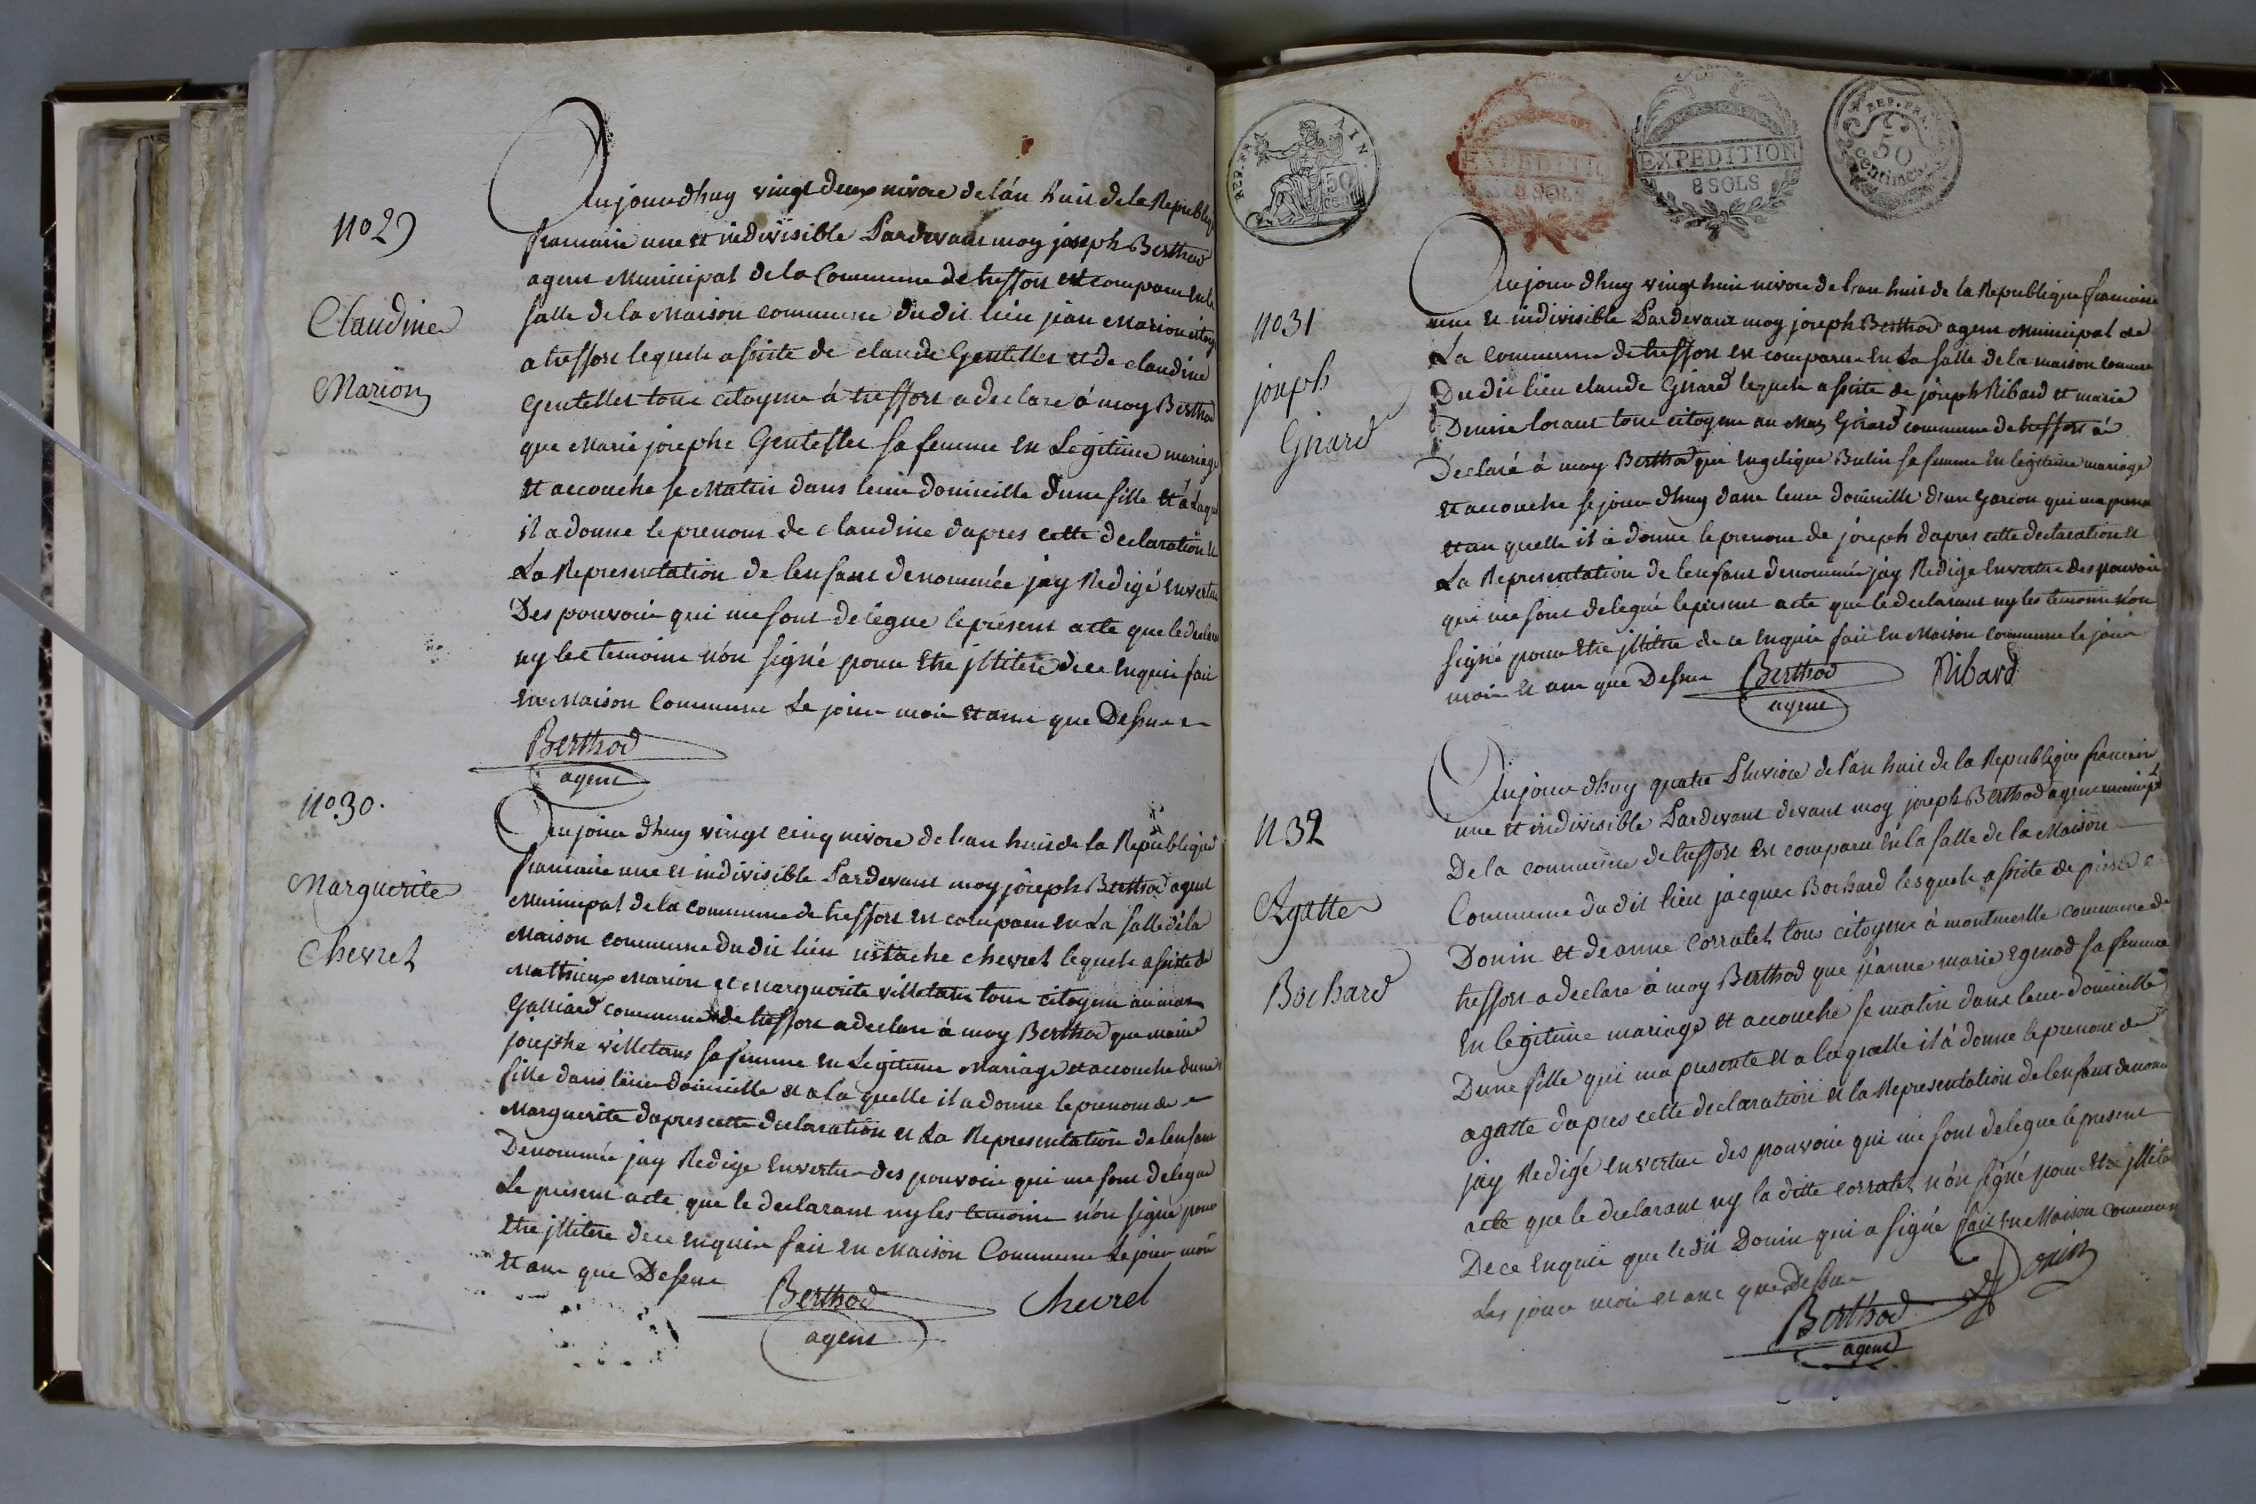 Aujourdhuy vingt deux nivose de lán huit de la Republiq
francaise une et indivisible Pardevant moy joseph Berthod
agent Municipal de la Commune de treffort est comparu en la
salle de la Maison commune du dit lieu jean Marion citoy
a treffort lequele assiste de claude Gentellet et de claudine
Gentellet tous citoyens à treffort a declare à moy Berthod
que Marie josephe Gentellet sa femme en Legitime mariage
et accouche se Matin dans leur domicille dune fille et à Laqu
il a donne le prenom de claudine dapres cette declaration et
La Representation de lenfant denommée jay Redigé en vertu
Des pouvoir qui me sont delégue le présent acte que le declar
ny les temoins nón signé pour être jllitere de ce enquis fait
en Maison Commune Le jour mois et ans que Dessus
Berthod
agent
No 29
Claudine
Marion
Aujour dhuy vingt cinq nivose de l'an huit de la Republique
francaise une et indivisible Pardevant moy joseph Berthod agent
Municipal de la commune de treffort est comparu en La salle dela
Maison commune du dit lieu ustache chevret lequele assiste de
Mathieu Marion et Marguerite villetans tous citoyens au mas
Galliard commune de treffort a declare à moy Berthod que marie
josephe villetans sa femme en Legitime Mariage et accouche dune
fille dans leur domicille et a la quelle il a donne le prenom de
Marguerite dapres cette declaration et La Representation de lenfant
Denommée jay Redige en vertu des pouvoir qui me sont delegue
Le present acte que le declarant ny les temoins nón signé pour
être jllitere de ce enquis fait en Maison Commune Le jour mois
et ans que Dessus
Berthod
agent
Chevrel
No 30.
Marguerite
Chevret
REP. FRA AIN
50
CENT
EXPEDITIO
8 SOLS
EXPEDITION
8 SOLS
REP. FRA.
50
Centimes
Aujour dhuy vingt huit nivose de l'an huit de la Republique francaise
une et indivisible Pardevant moy joseph Berthod agent Municipal de
La commune de treffort est comparu En La salle de la maison commune
Du dit lieu claude Girard lequele assiste de joseph Ribard et marie
Denise lorant tous citoyens au Mas Girard commune de treffort a
Declaré à moy Berthod que Engelique Butin sa femme en legitime mariage
et accouche se jour dhuy dans leur domicille d'un Garson qui ma present
et au quelle il a donne le prenom de joseph dapres cette declaration et
La Representation de lenfant denommée jay Redige en vertu des pouvoir
qui me sont delegué le present acte que le declarant ny les temoins nón
signé pour être jllitere de ce enquis fait en Maison commune le jour
mois et ans que Dessus
Berthod
agent
Ribard
No 31
joseph
Girard
Aujour dhuy quatre Pluviose de l'an huit de la Republique francaise
une et indivisible Pardevant devant moy joseph Berthod agent municipal
De la commune de treffort est comparu en la salle de la Maison
Commune du dit lieu jacques Bochard lesquele assiste de pierre
Donin et de anne Corratet tous citoyens à montmerle commune de
treffort a declare à moy Berthod que jeanne marie Egmod sa femme
En legitime mariage et accouche se matin dans leur domicille
Dune fille qui ma presente et a laquelle il à donne le prenom de
agatte dapres cette declaration et la Representation de lenfant denomé
jay Redigé en vertu des pouvoir qui me sont delegue le present
acte que le declarant ny la ditte corratet nón signé pour être jlléte
De ce enquis que le dit Donin qui a signé fait en Maison commun
Les jour mois et ans que Dessus
Berthod
agent
Donin
N 32
Agatte
Bochard